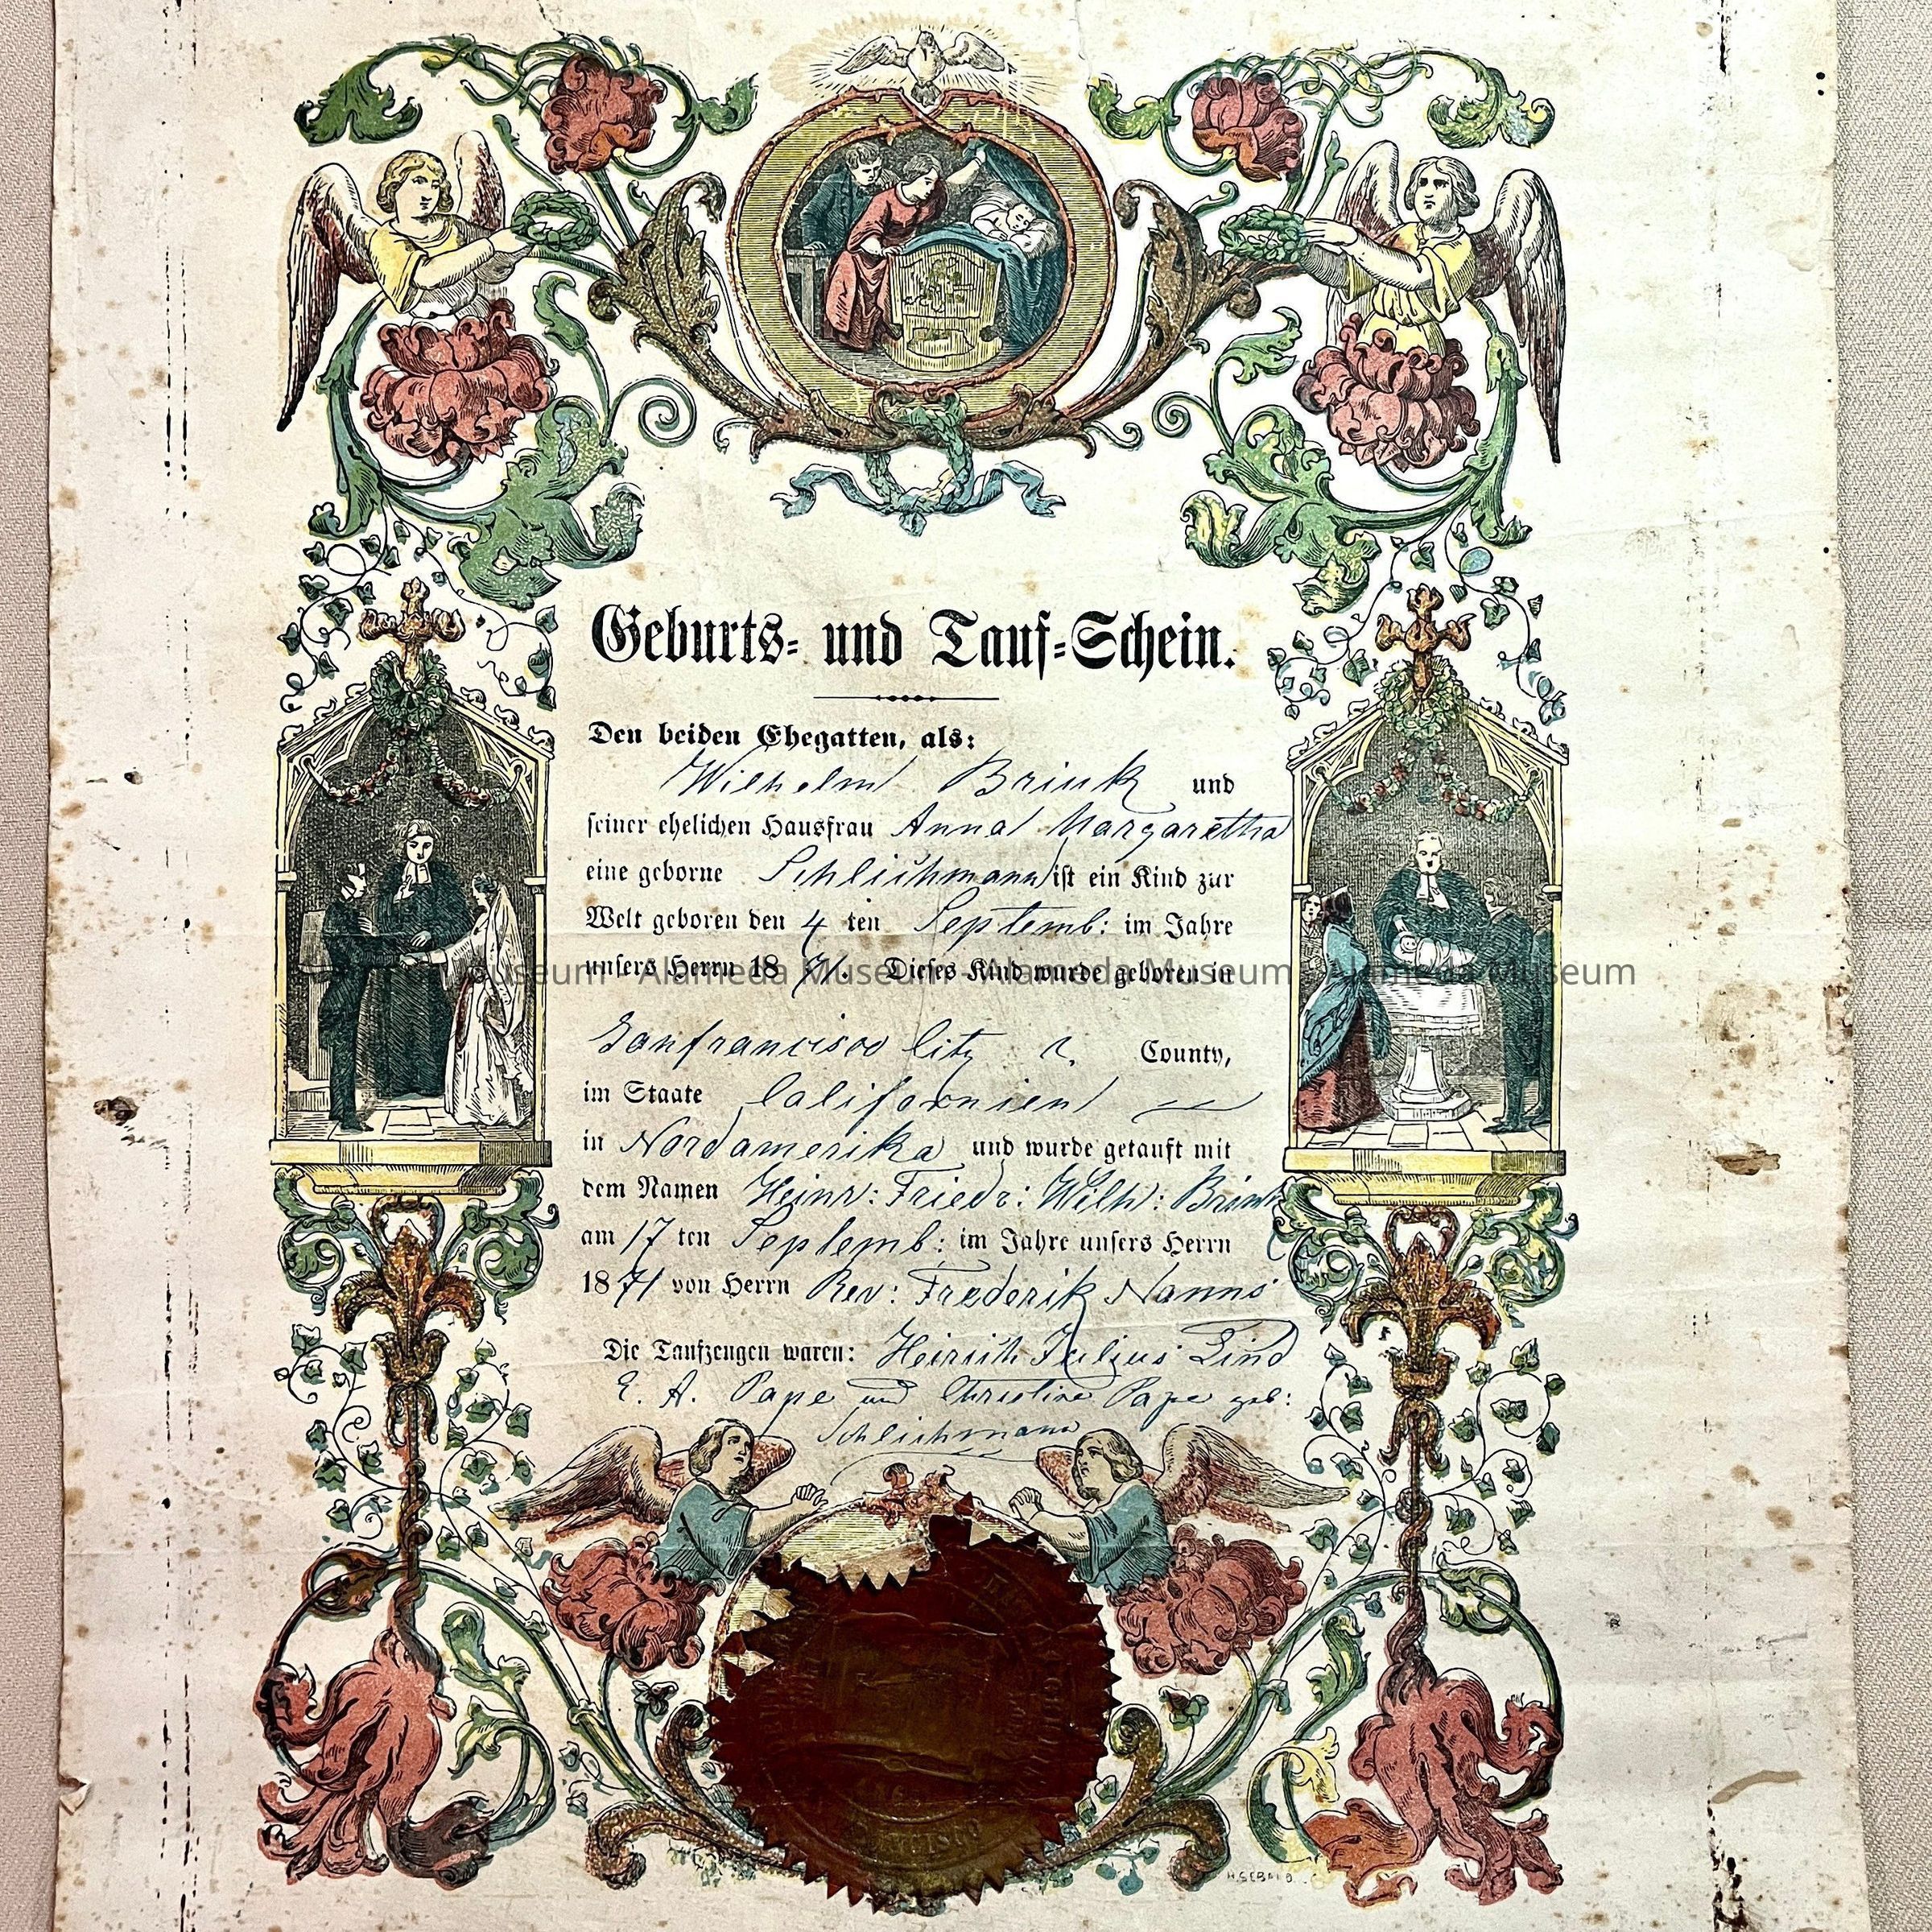 Geburts- und Tauf-Schein.
Den beiden Ehegatten, als:
Wilhelm Brink und
seiner ehelichen Hausfrau Anna Margaretha
eine geborne Schlichmann ist ein Kind zur
Welt geboren den 4 ten Septemb: im Jahre
unsers Herrn 1871. Dieses Kind wurde geboren in
Museum - Alameda Museum - Alameda Museum - Alameda Museum
Sanfrancisco City County,
im Staate Californien
in Nordamerika und wurde getauft mit
dem Namen Heinr: Friedr: Wilh: Brink
am 17 ten Septemb: im Jahre unsers Herrn
1871 von Herrn Rev: Frederik Nanns
Die Taufzeugen waren: Heinrich Julius Lind
E. A. Pape und Christine Pape geb:
Schlichmann
FRANCISCO
H.SEBALD